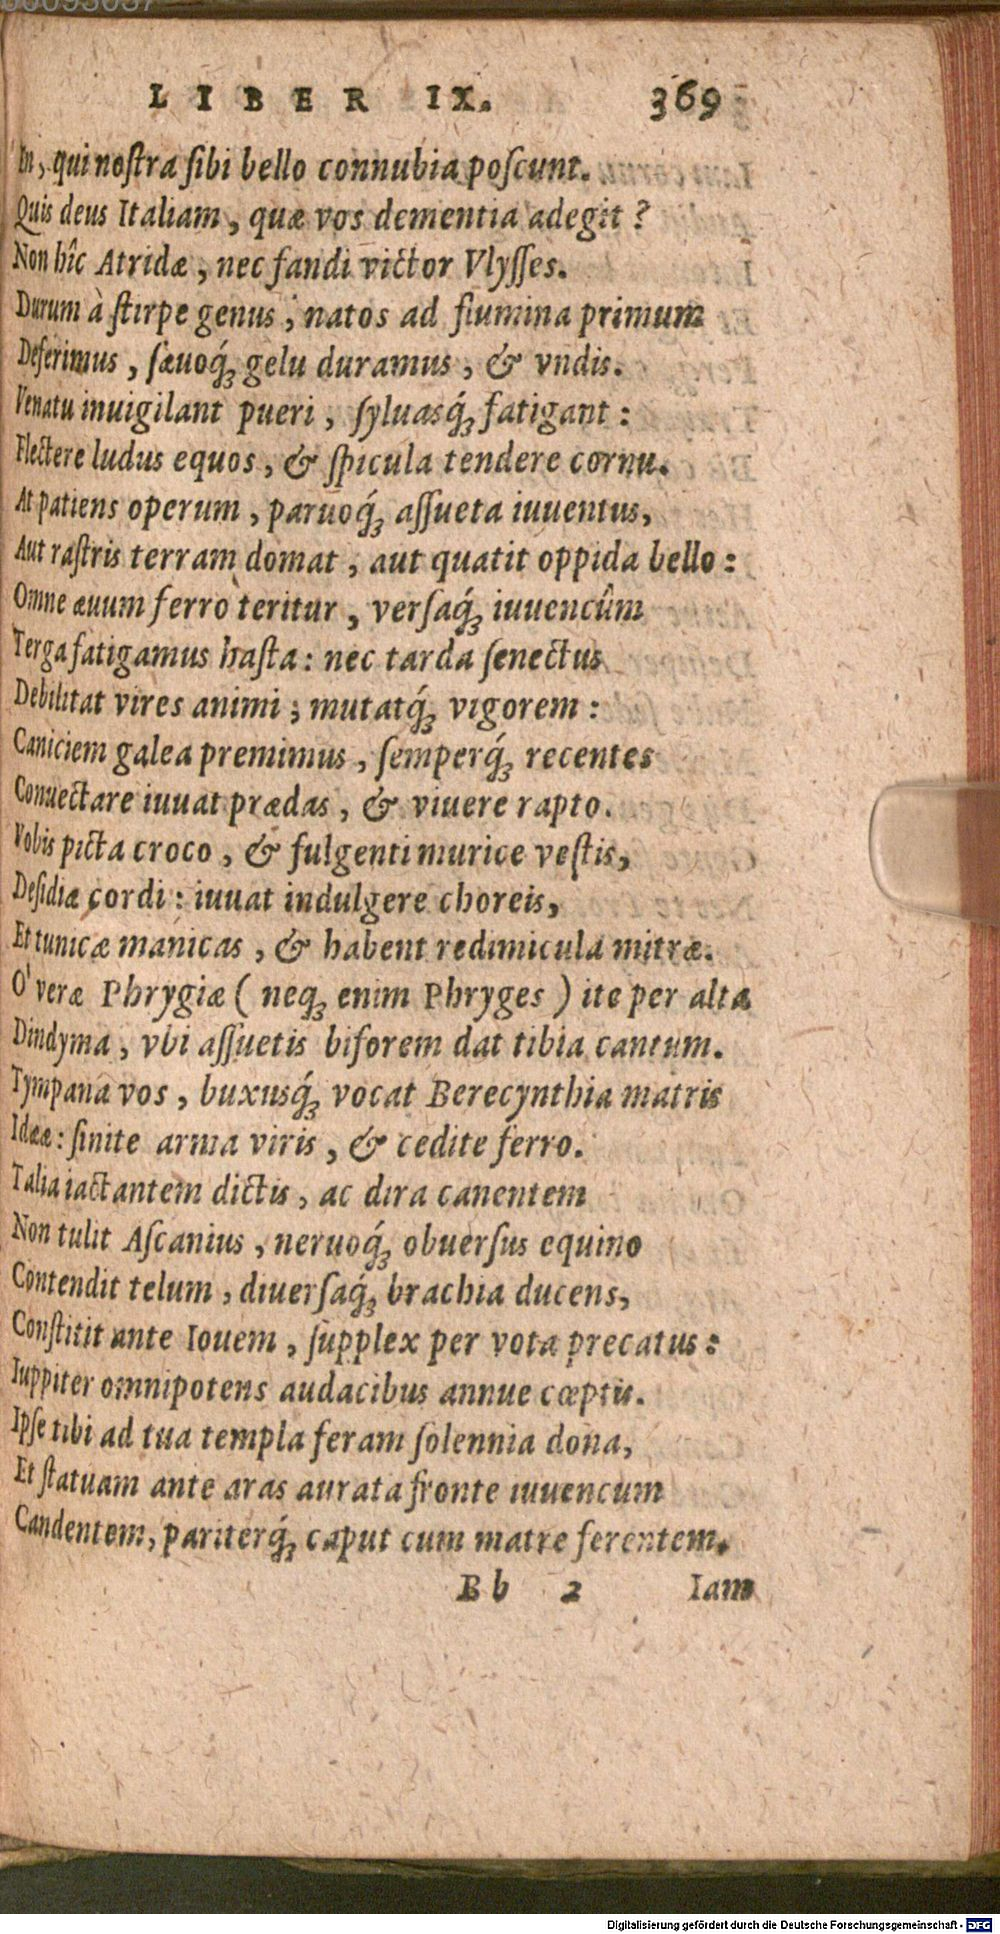 LIBER IX. 369
En, qui nostra sibi bello connubia poscunt.
Quis deus Italiam, quæ vos dementia adegit?
Non hîc Atridæ, nec fandi victor Vlysses.
Durum à stirpe genus; natos ad flumina primum
Deferimus, sæuoq́; gelu duramus, & vndis.
Venatu inuigilant pueri, syluasq́; fatigant:
Flectere ludus equos, & spicula tendere cornu.
At patiens operum, paruoq́; assueta iuuentus,
Aut rastris terram domat, aut quatit oppida bello:
Omne æuum ferro teritur, versaq́; iuuencûm
Terga fatigamus hasta: nec tarda senectus
Debilitat vires animi; mutatq́; vigorem:
Caniciem galea premimus, semperq́; recentes
Conuectare iuuat prædas, & viuere rapto.
Vobis picta croco, & fulgenti murice vestis,
Desidiæ cordi: iuuat indulgere choreis,
Et tunicæ manicas, & habent redimicula mitræ.
O' veræ Phrygiæ (neq; enim Phryges) ite per alta
Dindyma, vbi assuetis biforem dat tibia cantum.
Tympana vos, buxusq́; vocat Berecynthia matris
Idææ: sinite arma viris, & cedite ferro.
Talia iactantem dictis, ac dira canentem
Non tulit Ascanius, neruoq́; obuersus equino
Contendit telum, diuersaq́; brachia ducens,
Constitit ante Iouem, supplex per vota precatus:
Iuppiter omnipotens audacibus annue cœptis.
Ipse tibi ad tua templa feram solennia dona,
Et statuam ante aras aurata fronte iuuencum
Candentem, pariterq́; caput cum matre ferentem.
Bb 2 Iam
Digitalisierung gefördert durch die Deutsche Forschungsgemeinschaft - DFG